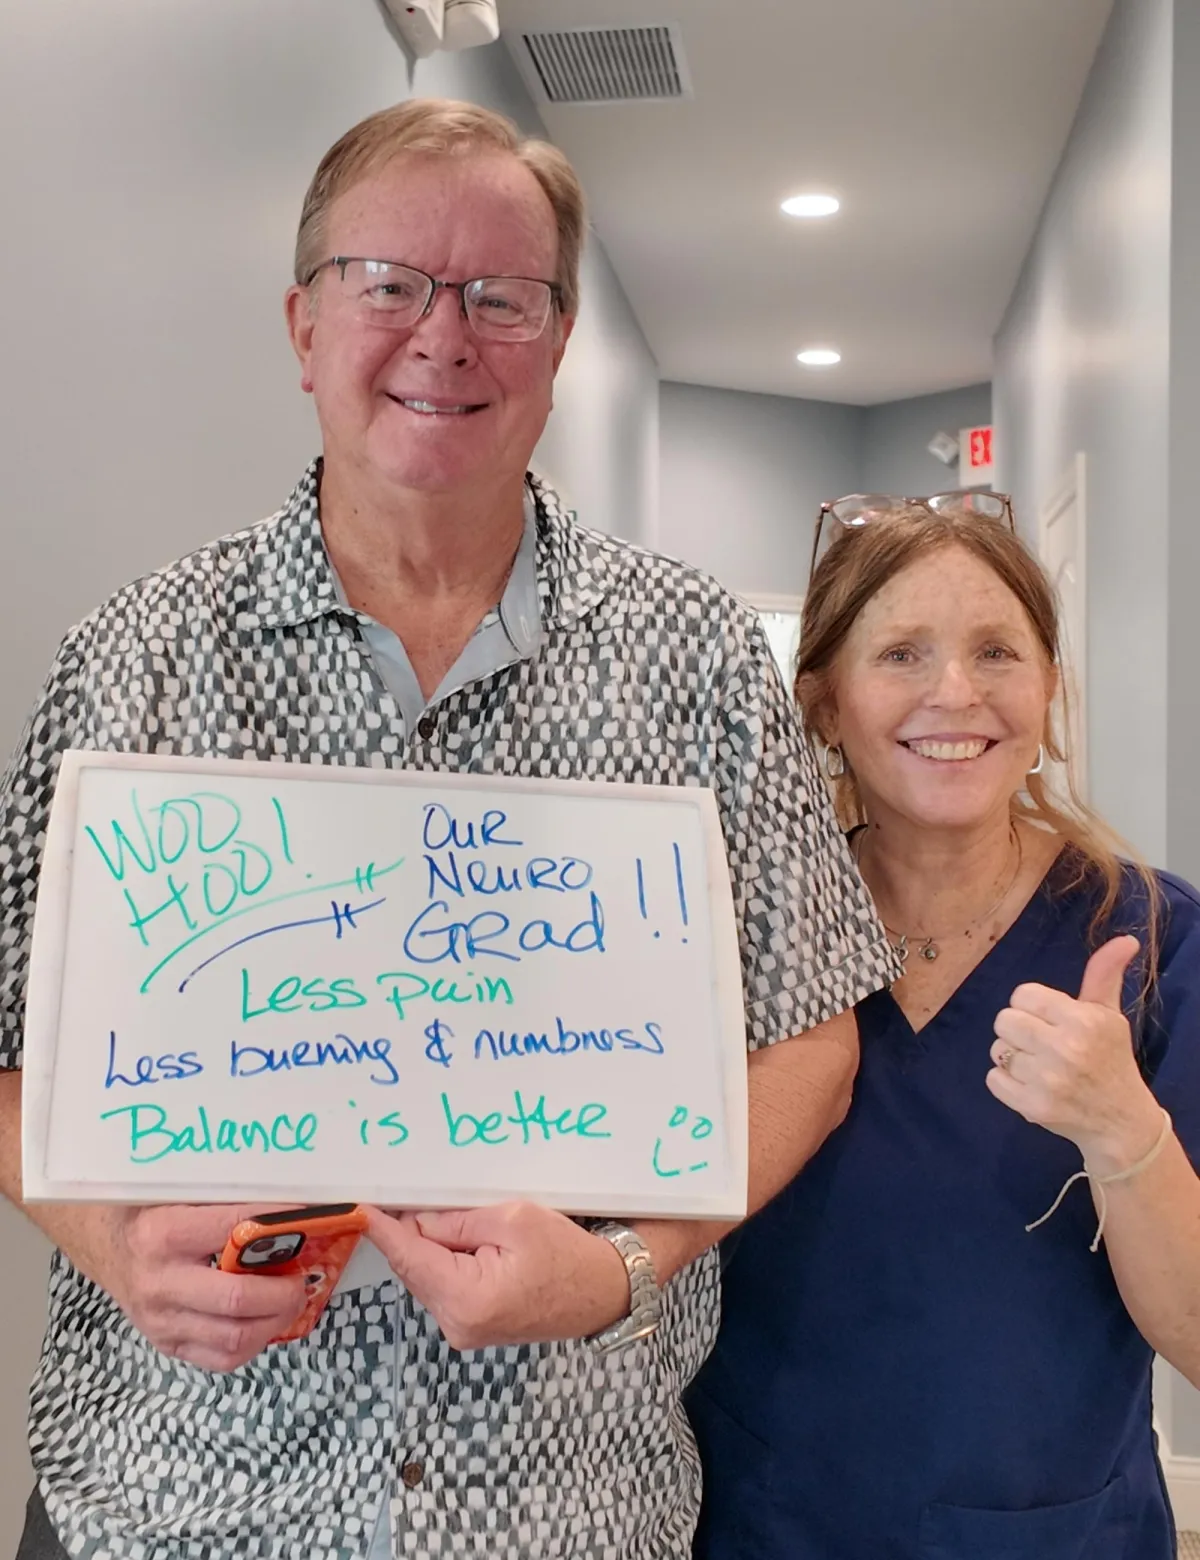 WOO
HOO!
OUR
NEURO
GRad !!
Less pain
Less burning & numbness
Balance is better
EX